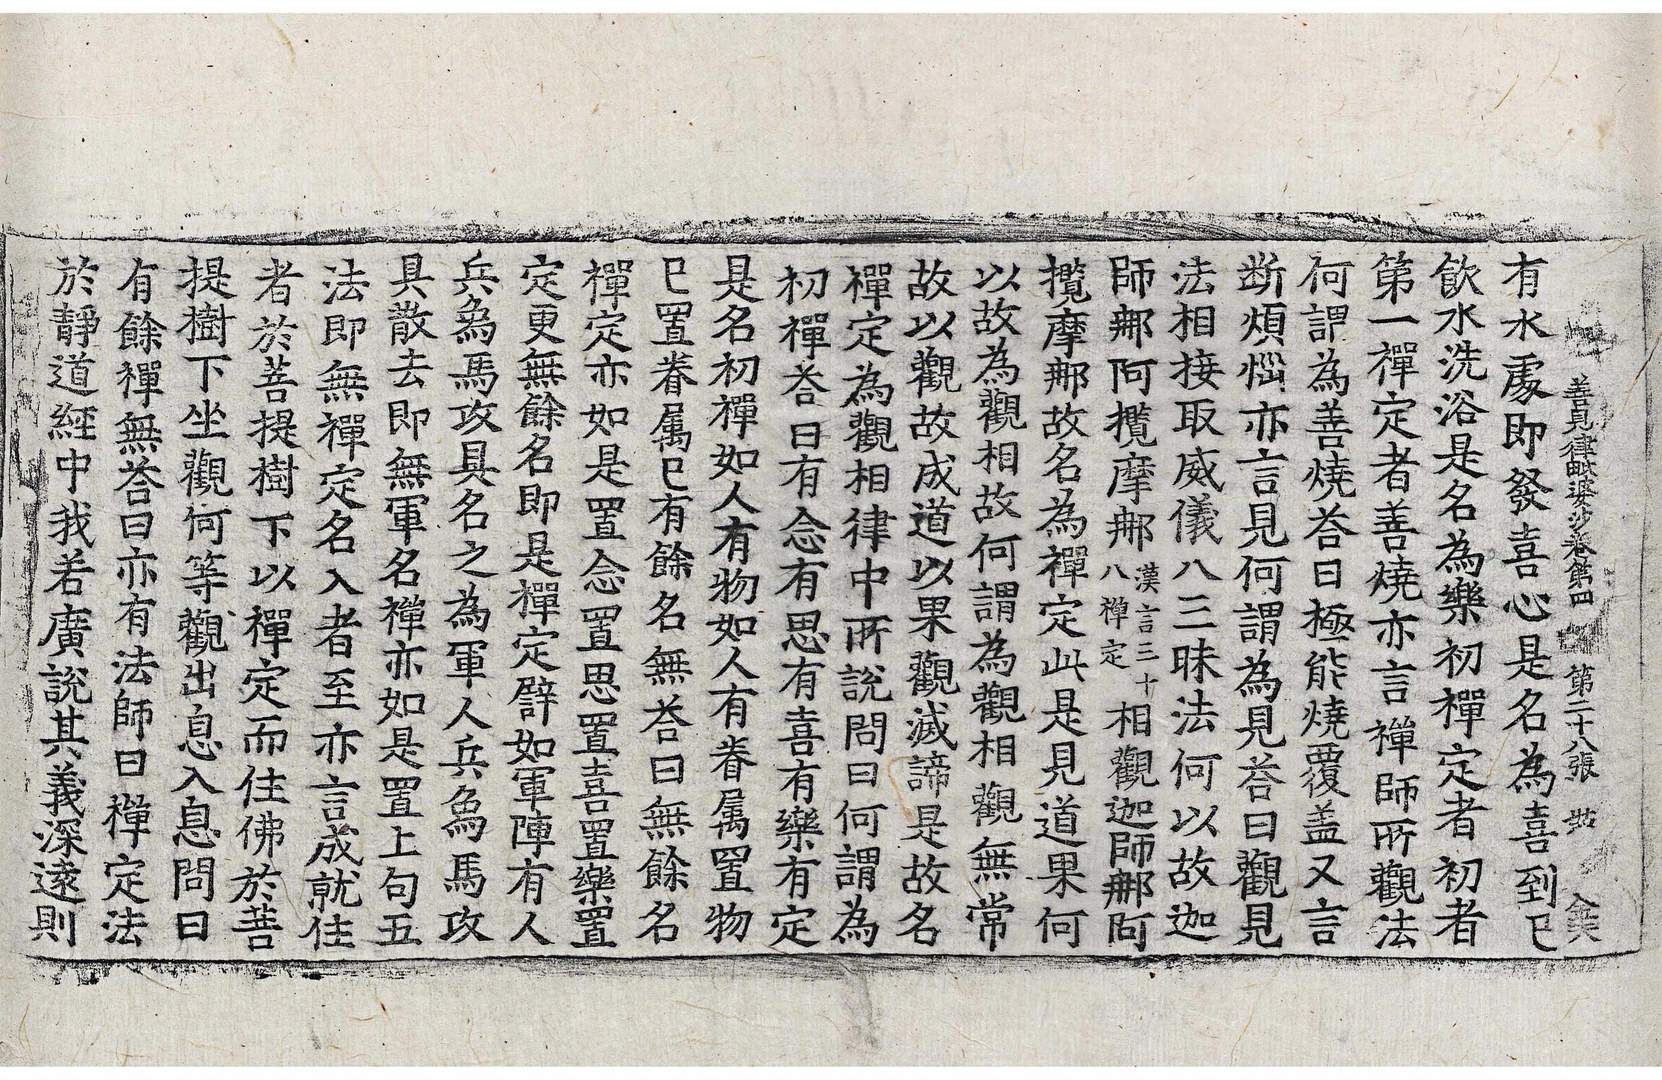 善見律毗婆沙卷第四 第二十八張 
有水處即發喜心是名為喜到已
飲水洗浴是名為樂初禪定者初者
第一禪定者善燒亦言禪師所觀法
何謂為善燒荅曰極能燒覆盖又言
断煩惱亦言見何謂為見荅曰觀見
法相接取威儀八三昧法何以故迦
師㖠阿攬摩㖠漢言三十八禪定相觀迦師㖠阿
攬摩㖠故名為禪定此是見道果何
以故為觀相故何謂為觀相觀無常
故以觀故成道以果觀滅諦是故名
禪定為觀相律中所說問曰何謂為
初禪荅曰有念有思有喜有樂有定
是名初禪如人有物如人有眷属置物
已置眷属已有餘名無荅曰無餘名
禪定亦如是置念置思置喜置樂置
定更無餘名即是禪定譬如軍陣有人
兵為馬攻具名之為軍人兵為馬攻
具散去即無軍名禪亦如是置上句五
法即無禪定名入者至亦言成就住
者於菩提樹下以禪定而住佛於菩
提樹下坐觀何等觀出息入息問曰
有餘禪無荅曰亦有法師曰禪定法
於靜道經中我若廣說其義深遠則